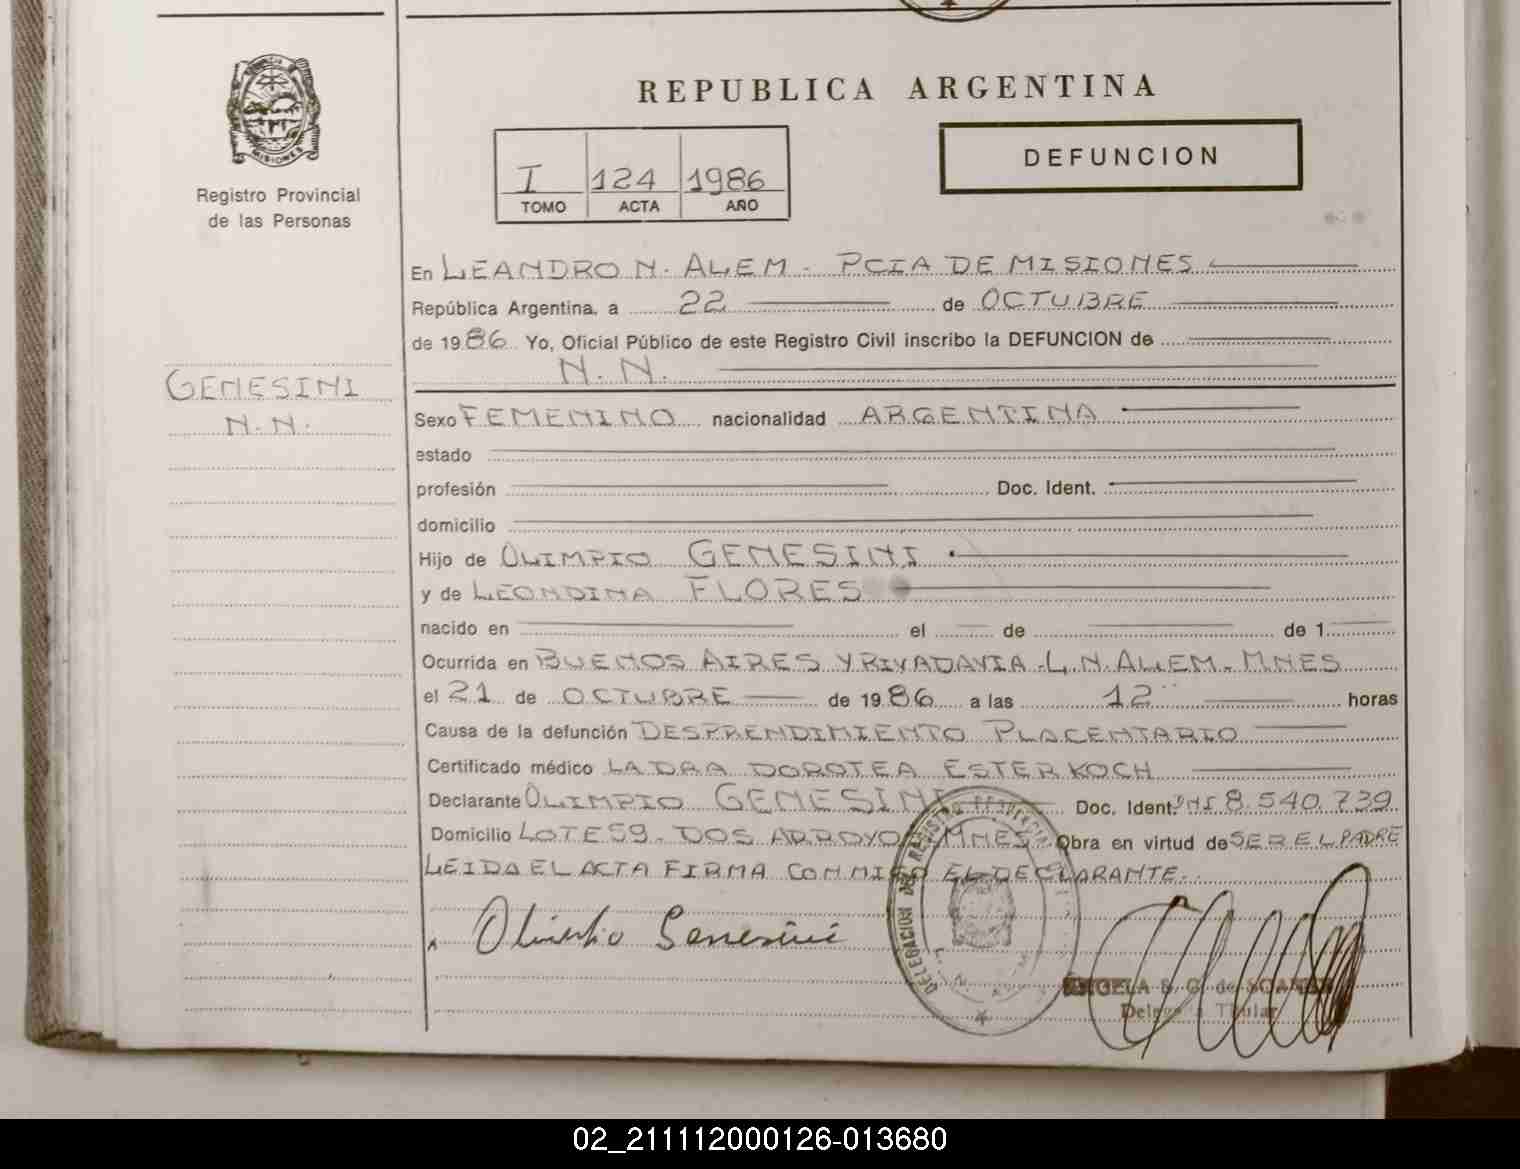 REPUBLICA ARGENTINA
MISIONES
Registro Provincial
de las Personas
I 124 1986
TOMO ACTA AÑO
DEFUNCION
GENESINI
N. N.
En LEANDRO N. ALEM - PCIA DE MISIONES
República Argentina, a 22 de OCTUBRE
de 1986 Yo, Oficial Público de este Registro Civil inscribo la DEFUNCION de
N. N.
Sexo FEMENINO nacionalidad ARGENTINA
estado
profesión Doc. Ident.
domicilio
Hijo de OLIMPIO GENESINI
y de LEONDINA FLORES
nacido en el de de 1
Ocurrida en BUENOS AIRES Y RIVADAVIA - L. N. ALEM - MNES
el 21 de OCTUBRE de 1986 a las 12 horas
Causa de la defunción DESPRENDIMIENTO PLACENTARIO
Certificado médico LA DRA DOROTEA ESTER KOCH
Declarante OLIMPIO GENESINI Doc. Ident. DNI 8.540.739
Domicilio LOTE 59 - DOS ARROYOS MNES - Obra en virtud de SER EL PADRE
LEIDA EL ACTA FIRMA CONMIGO EL DECLARANTE.
Olimpio Genesini
DELEGACION DEL REGISTRO PROVINCIAL
L. N. A
S. G. de
Titular
02_211112000126-013680